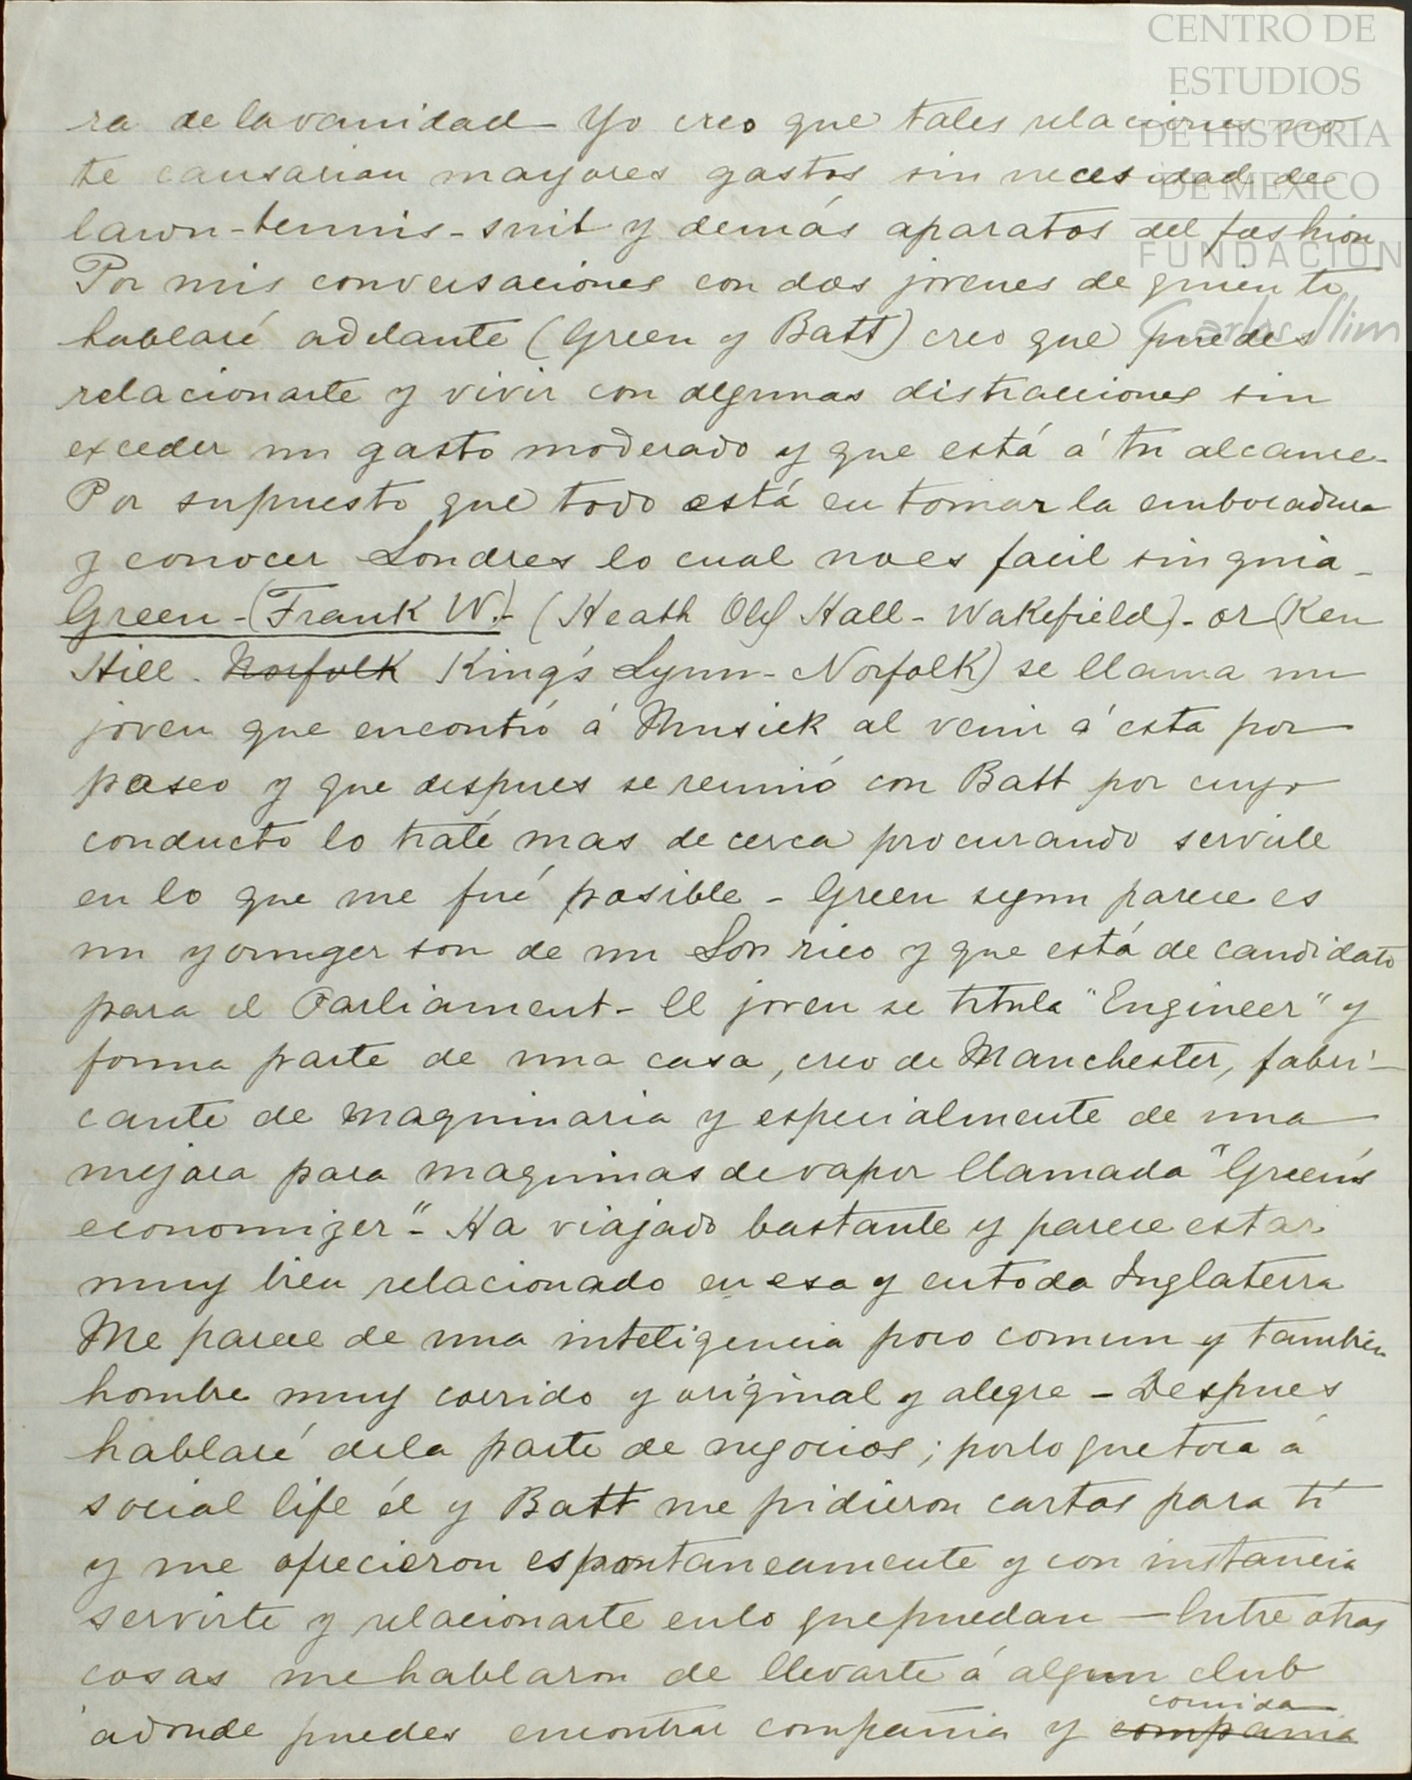 CENTRO DE
ESTUDIOS
DE HISTORIA
DE MEXICO
FUNDACION
Carlos Slim
ra de la vanidad - Yo creo que tales relaciones no
te causarian mayores gastos sin necesidad de
lawn-tennis-suit y demás aparatos del fashion
Por mis conversaciones con dos jovenes de quien te
hablaré adelante (Green y Batt) creo que puedes
relacionarte y vivir con algunas distracciones sin
exceder un gasto moderado y que está á tu alcance -
Por supuesto que todo está en tomar la embocadura
y conocer Londres lo cual no es facil sin guia -
Green - (Frank W.) - (Heath Old Hall - Wakefield) - or (Ken
Hill - Norfolk King's Lynn - Norfolk) se llama un
joven que encontró á Musick al venir á esta por
paseo y que despues se reunió con Batt por cuyo
conducto lo traté mas de cerca procurando servirle
en lo que me fué posible - Green segun parece es
un younger son de un Lon rico y que está de candidato
para el Parliament - El joven se titula "Engineer" y
forma parte de una casa, creo de Manchester, fabri-
cante de maquinaria y especialmente de una
mejora para maquinas de vapor llamada "Green's
economizer" - Ha viajado bastante y parece estar
muy bien relacionado en esa y en toda Inglaterra
Me parece de una inteligencia poco comun y tambien
hombre muy corrido y original y alegre - Despues
hablaré de la parte de negocios; por lo que toca á
social life él y Batt me pidieron cartas para tí
y me ofrecieron espontaneamente y con instancia
servirte y relacionarte en lo que puedan - Entre otras
cosas me hablaron de llevarte á algun club
adonde puedes encontrar compañia y compania comida